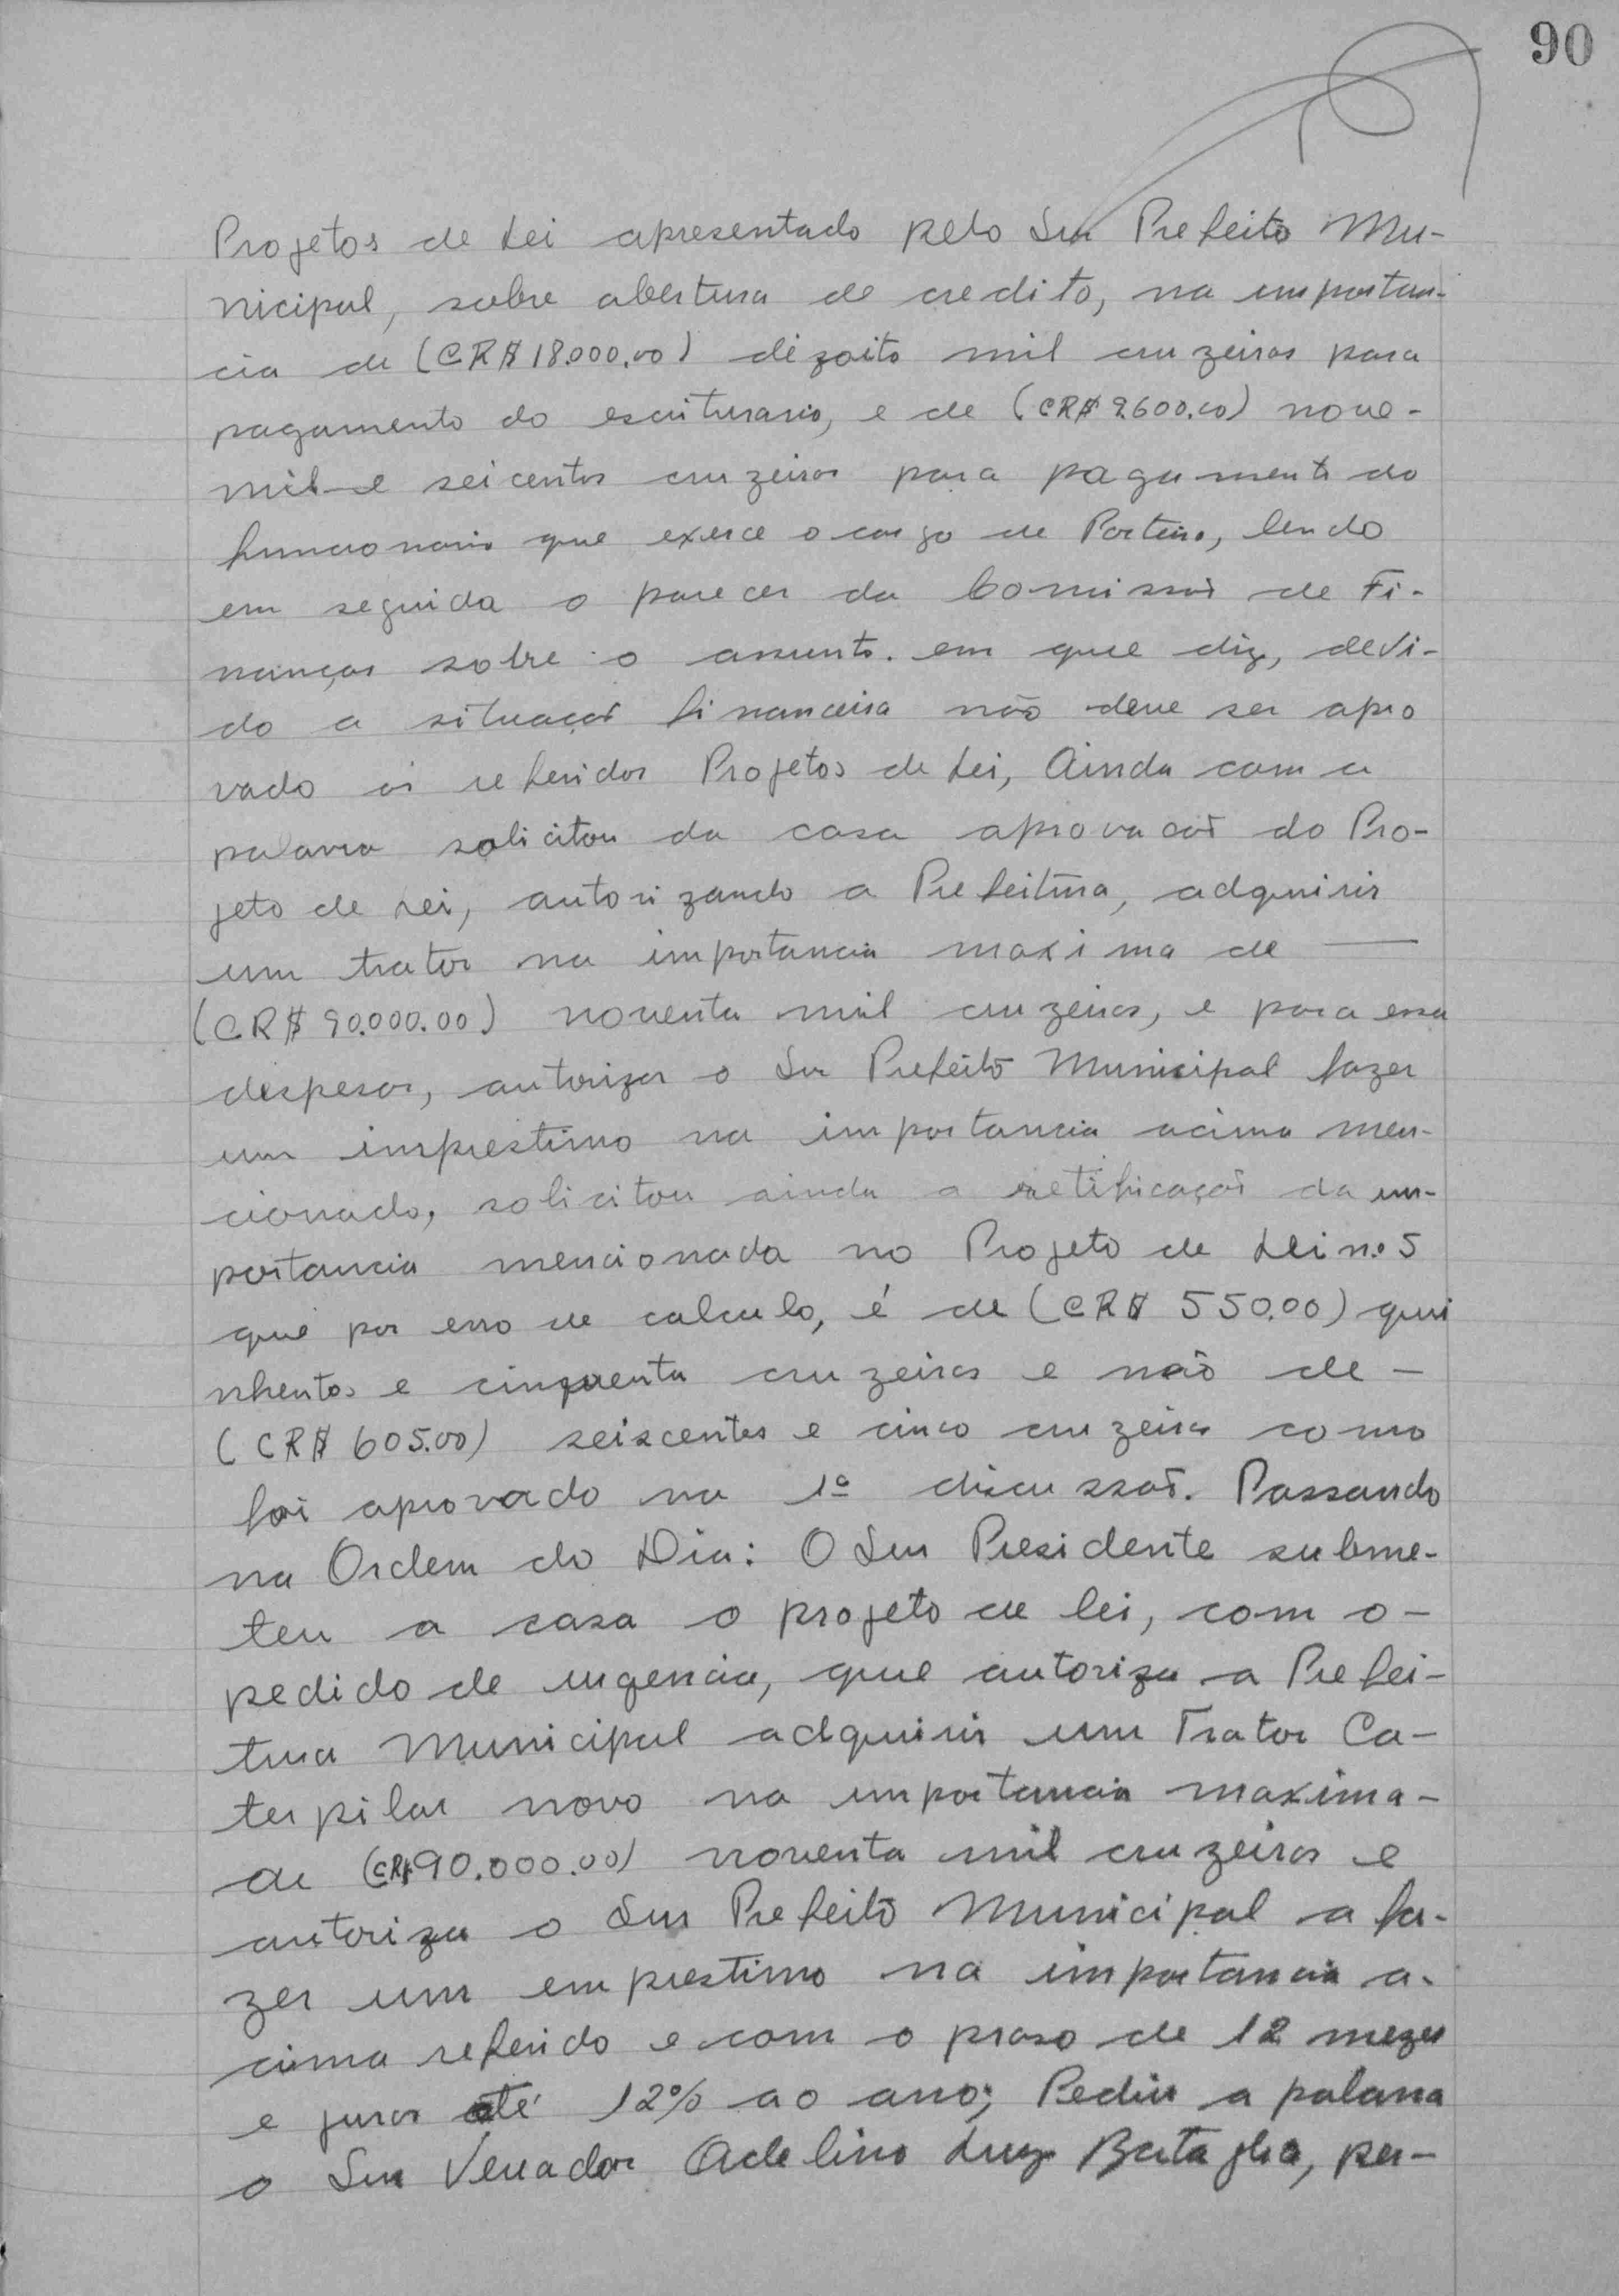 90
Projetos de Lei apresentado pelo Snr Prefeito Mu-
nicipal, sobre abertura de credito, na importan-
cia de (CR$ 18.000,00) dezoito mil cruzeiros para
pagamento do escriturario, e de (CR$ 9.600,00) nove-
mil e seicentos cruzeiros para pagamento do
funcionario que exerce o cargo de Porteiro, lendo
em seguida o parecer da Comissão de Fi-
nanças sobre o assunto. em que diz, devi-
do a situação financeira não deve ser apro
vado os referidos Projetos de Lei, Ainda com a
palavra solicitou da casa aprovacão do Pro-
jeto de Lei, autorizando a Prefeitura, adquirir
um trator na importancia maxima de —
(CR$ 90.000.00) noventa mil cruzeiros, e para essa
despesas, autorizar o Snr Prefeito Municipal fazer
um imprestimo na importancia acima men-
cionado, solicitou ainda a retificação da im-
portancia mencionada no Projeto de Lei n.o 5
que por erro de calculo, é de (CR$ 550.00) qui
nhentos e cinquenta cruzeiros e não de -
(CR$ 605.00) seiscentos e cinco cruzeiros como
foi aprovado na 1a discussão. Passando
na Ordem do Dia: O Snr Presidente subme-
teu a casa o projeto de lei, com o -
pedido de urgencia, que autoriza a Prefei-
tura Municipal adquirir um Trator Ca-
terpilar novo na importancia maxima -
de (CR$ 90.000.00) noventa mil cruzeiros e
autoriza o Snr Prefeito Municipal a fa-
zer um emprestimo na importancia a-
cima referido e com o praso de 12 mezes
e juros até 12% ao ano; Pediu a palavra
o Snr Vereador Adelino Luiz Bertaglia, per-